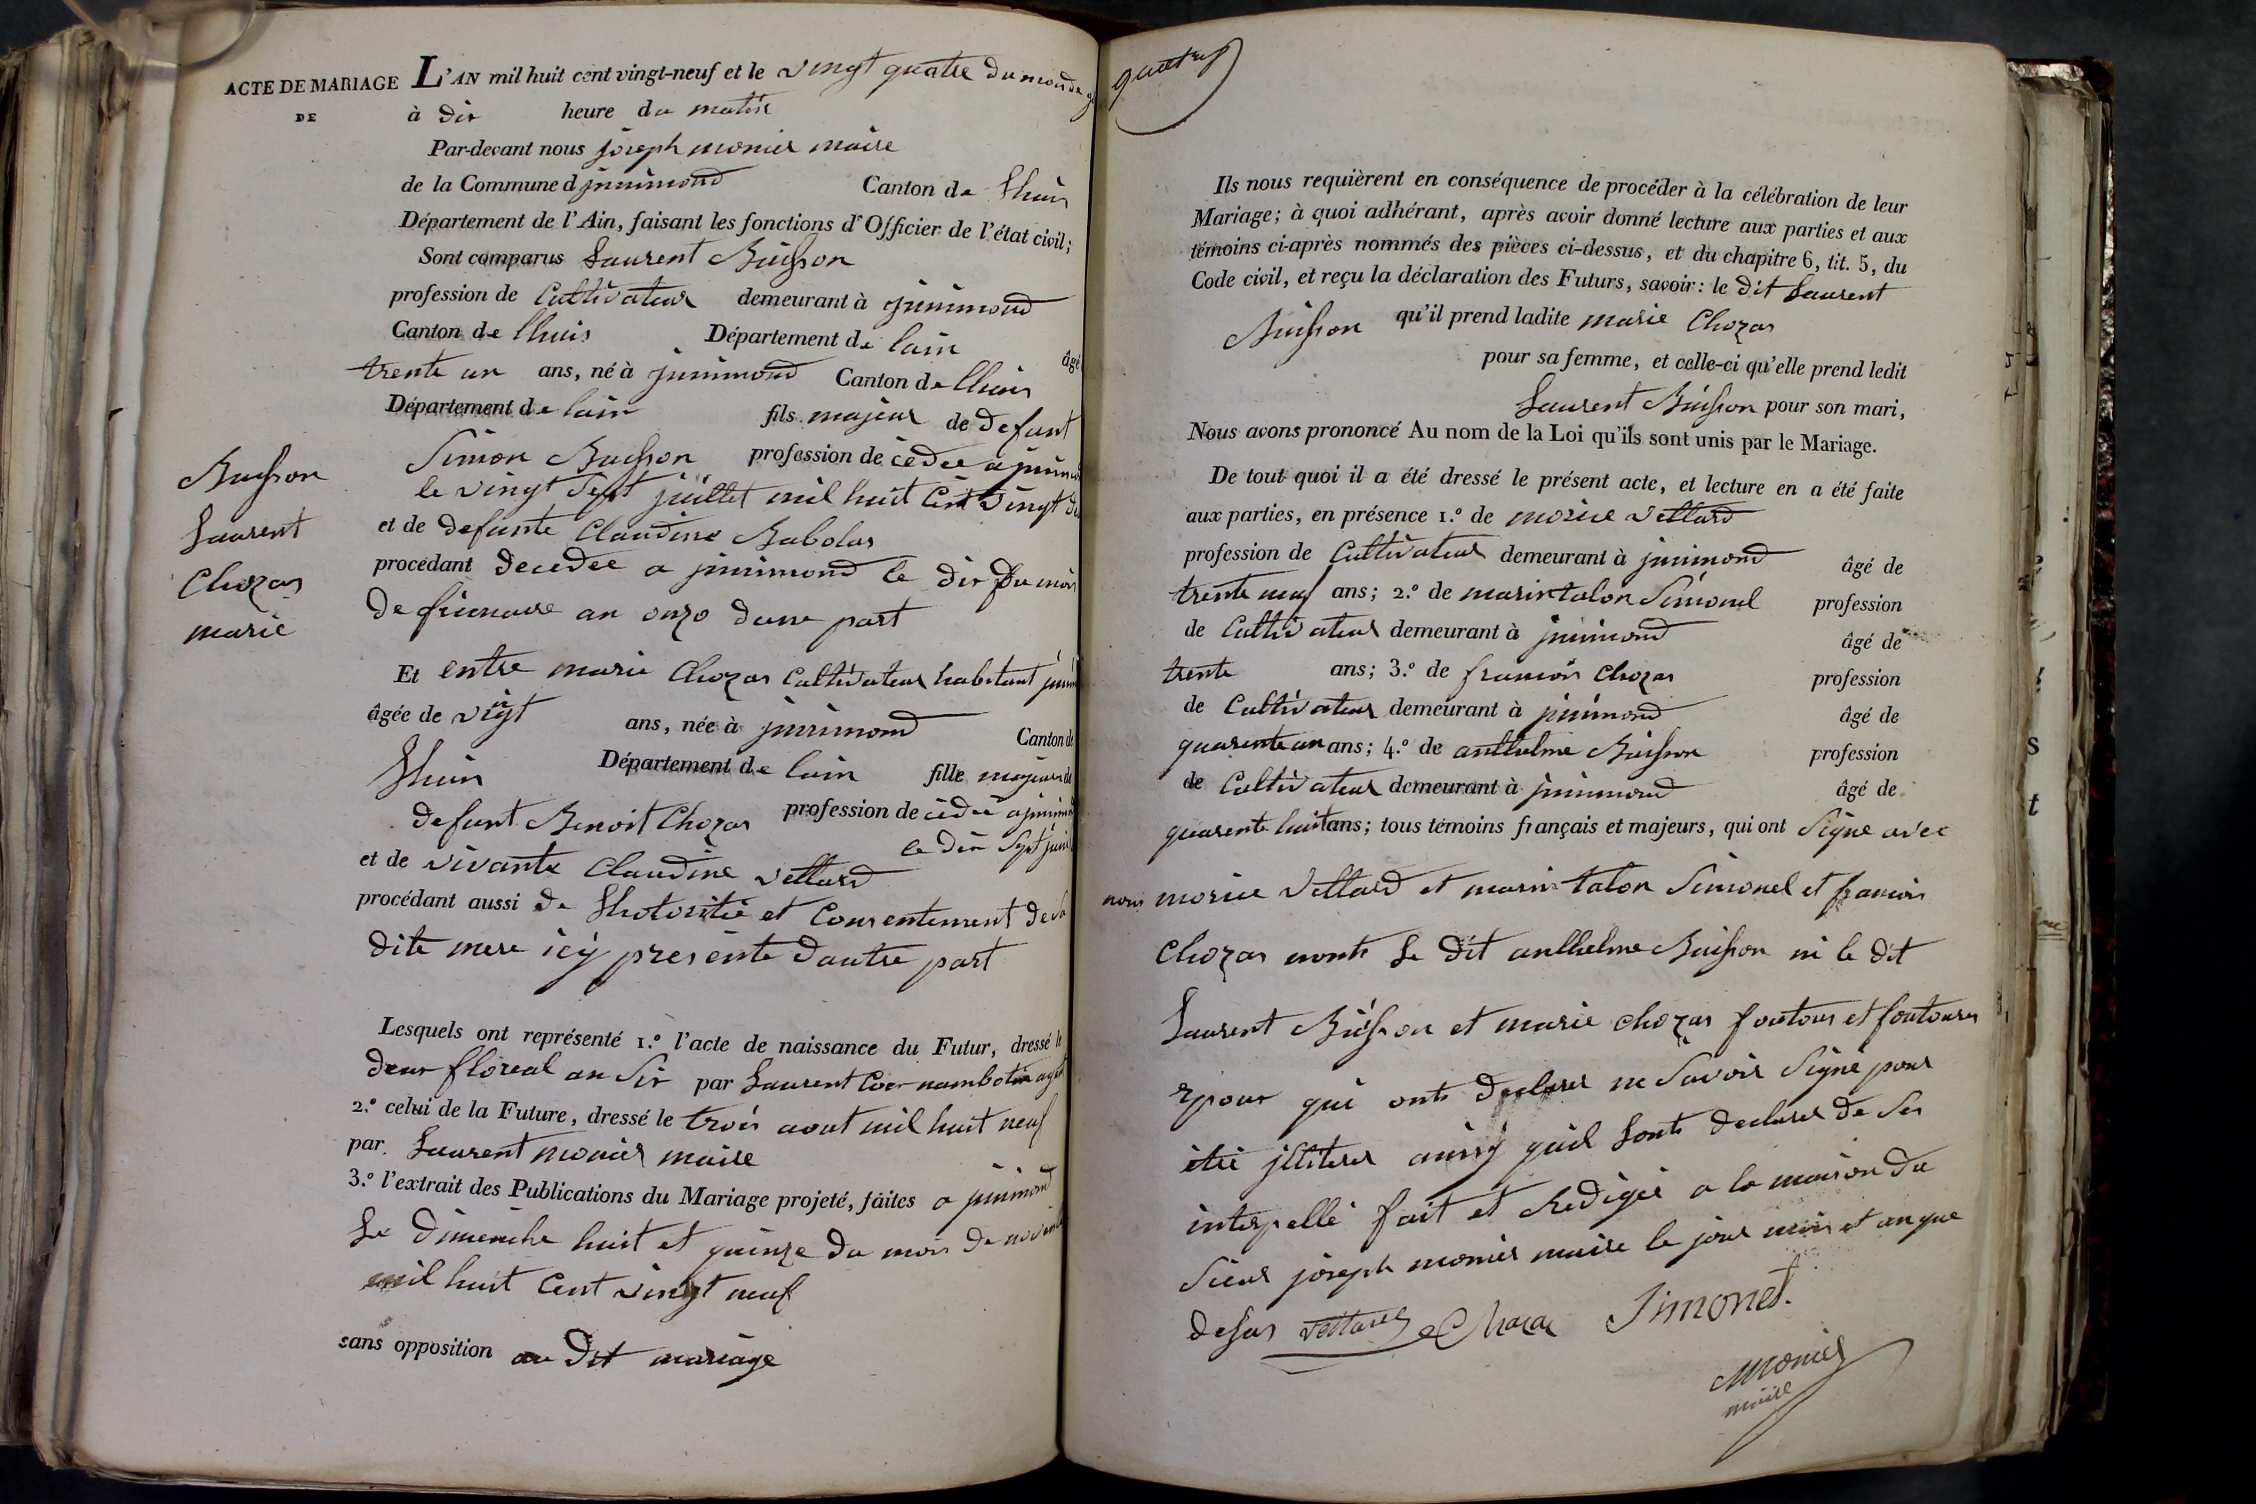 ACTE DE MARIAGE
DE
Buisson
Laurent
Chozas
marie
L'AN mil huit cent vingt-neuf et le vingt quatre du mois de
à dix heure du matin
Par-devant nous joseph monier maire
de la Commune d jnnimond Canton de Lhuis
Département de l'Ain, faisant les fonctions d'Officier de l'état civil;
Sont comparus Laurent Buisson
profession de Cultivateur demeurant à jnnimond
Canton de lhuis Département de lain âgé
trente un ans, né à jnnimond Canton de lhuis
Département de lain fils majeur de defunt
Simon Buisson profession de cédée a jnnimond
le vingt Sept juillet mil huit Cent vingt
et de defunte Claudine Babolas
procédant decedée a jnnimond le dix du mois
de frimaire an onze dune part
Et entre marie Chozas Cultivateur habitant
âgée de vingt ans, née à jnnimond Canton de
Lhuis Département de lain fille majeur de
defunt Benoit Chozas profession de cédée a jnnimond
le dix Sept
et de vivante Claudine vettard
procédant aussi de Lhotoritée et Consentement de Sa
dite mere icy presente dautre part
Lesquels ont représenté 1.º l'acte de naissance du Futur, dressé le
deux floreal an Six par Laurent nambotin agent
2.º celui de la Future, dressé le trois aout mil huit neuf
par Laurent monier maire
3.º l'extrait des Publications du Mariage projeté, faites a jnnimond
Le dimenche huit et quinze du mois de
mil huit Cent vingt neuf
sans opposition au dit mariage
Ils nous requièrent en conséquence de procéder à la célébration de leur
Mariage; à quoi adhérant, après avoir donné lecture aux parties et aux
témoins ci-après nommés des pièces ci-dessus, et du chapitre 6, tit. 5, du
Code civil, et reçu la déclaration des Futurs, savoir: le dit Laurent
Buisson qu'il prend ladite marie Chozas
pour sa femme, et celle-ci qu'elle prend ledit
Laurent Buisson pour son mari,
Nous avons prononcé Au nom de la Loi qu'ils sont unis par le Mariage.
De tout quoi il a été dressé le présent acte, et lecture en a été faite
aux parties, en présence 1.º de morice vettard
profession de Cultivateur demeurant à jnnimond âgé de
trente neuf ans; 2.º de marin talon Simonel profession
de Cultivateur demeurant à jnnimond âgé de
trente ans; 3.º de francois Chozas profession
de Cultivateur demeurant à jnnimond âgé de
quarente un ans; 4.º de anthelme Buisson profession
de Cultivateur demeurant à jnnimond âgé de
quarente huit ans; tous témoins français et majeurs, qui ont Signe avec
nous morice Vettard et marin talon Simonel et francois
Chozas nonts Le dit anthelme Buisson ni le dit
Laurent Buisson et marie chozas foutour et foutoures
epour qui onts declarer ne Savoir Signé pour
etre jlliteres ainsy quil Sonts declarer de Ses
interpellé fait et Redigée a la maison du
Sieur joseph monier maire le jour mois et an que
desus vettard Chozas Simonet.
Monier
maire